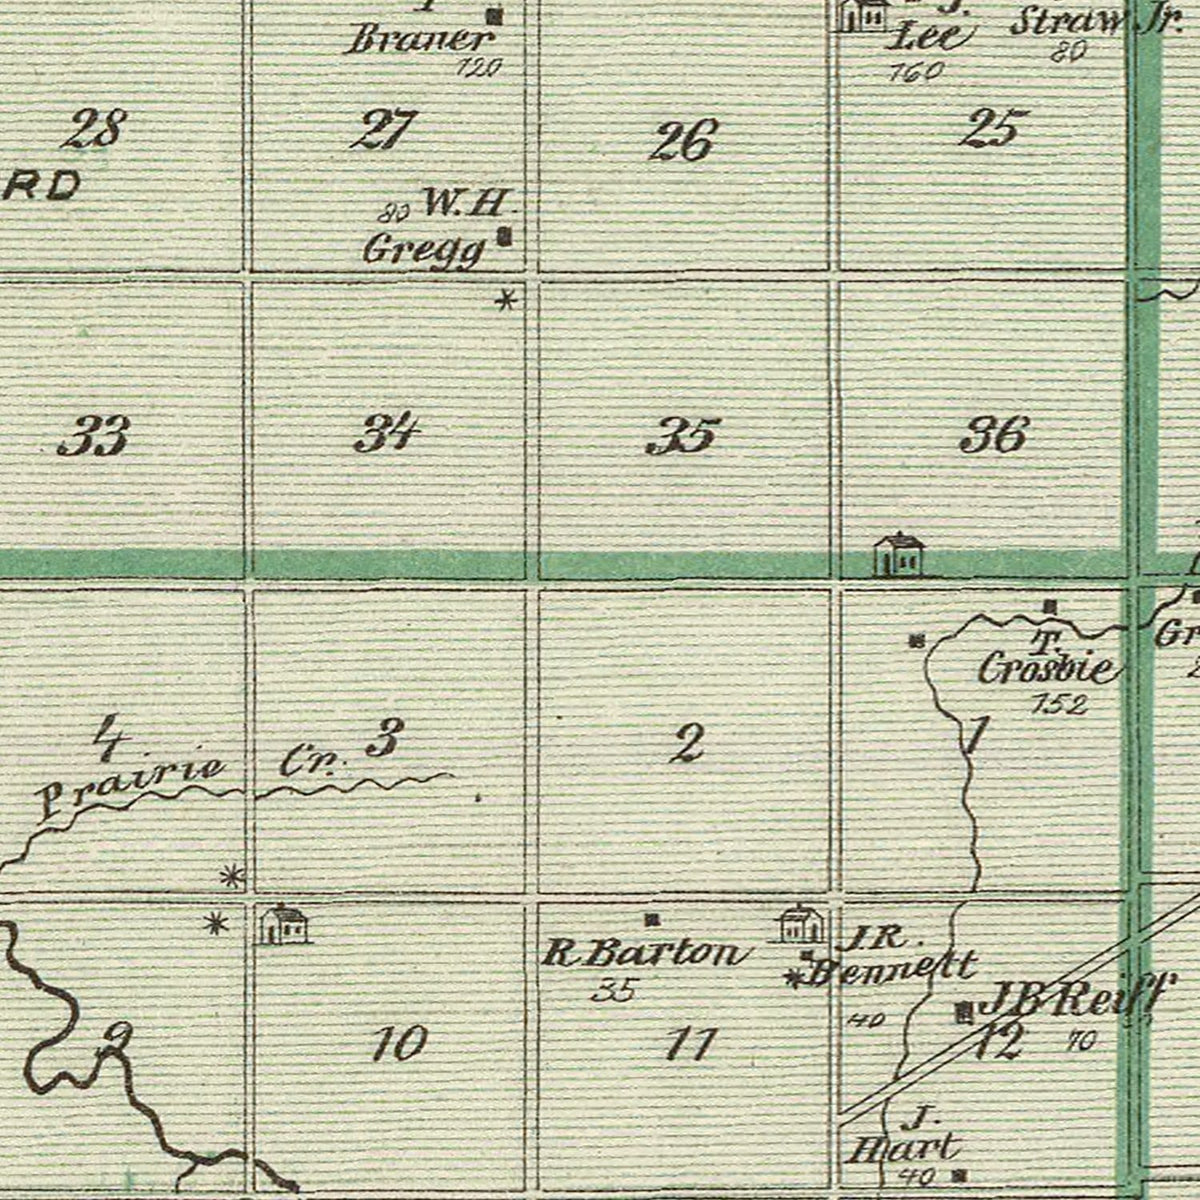 Braner
720
Lee
160
Straw Jr.
80
28
27
26
25
RD
80 W. H.
Gregg
33
34
35
36
T.
Crosbie
152
Gr
4
3
2
1
Prairie Cr.
R Barton
35
J R.
Bennett
40
J B Reiff
70
9
10
11
12
J.
Hart
40